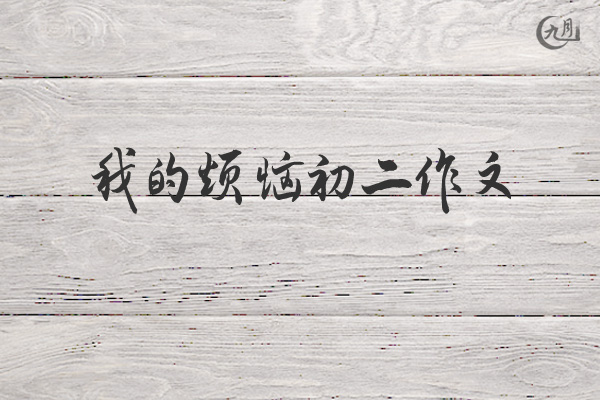 九月
我的烦恼初二作文